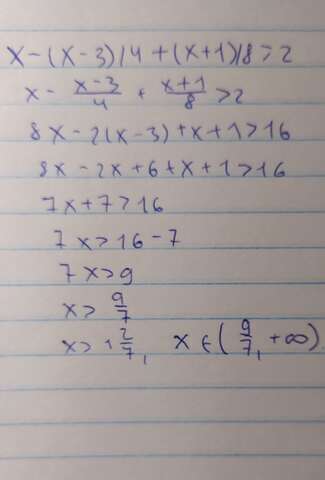 x-(x-3)/4+(x+1)/8>2
x - \frac{x-3}{4} + \frac{x+1}{8} >2
8x-2(x-3)+x+1>16
8x-2x+6+x+1>16
7x+7>16
7x>16-7
7x>9
x> \frac{9}{7}
x> 1\frac{2}{7}, x ∈ (\frac{9}{7}, +∞)